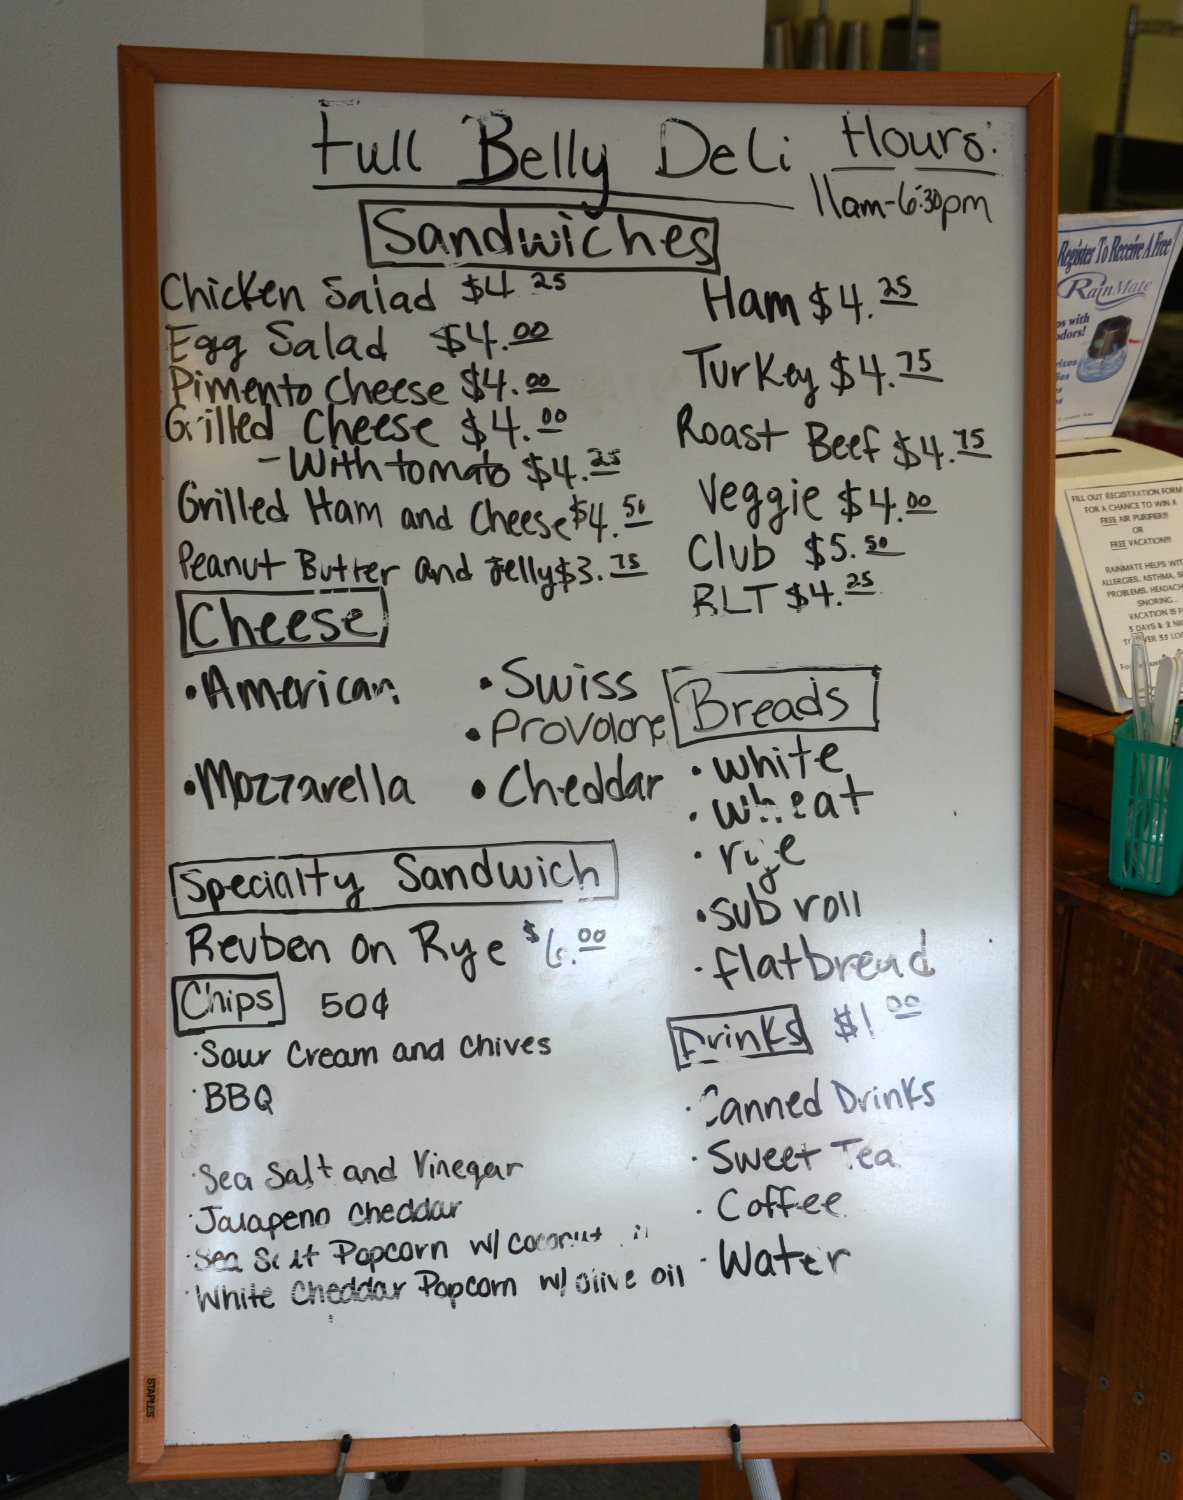 Full Belly Deli
Hours:
11am-6:30pm
Sandwiches
Chicken Salad $4 25
Egg Salad $4.00
Pimento Cheese $4.00
Grilled Cheese $4.00
- With tomato $4.25
Grilled Ham and Cheese $4.50
Peanut Butter and Jelly $3.75
Ham $4.25
Turkey $4.75
Roast Beef $4.75
Veggie $4.00
Club $5.50
BLT $4.25
Cheese
• American
• Swiss
• Provolone
• Mozzarella
• Cheddar
Breads
• white
• wheat
• rye
• sub roll
• flatbread
Specialty Sandwich
Reuben on Rye $6.00
Chips 50¢
• Sour Cream and Chives
• BBQ
• Sea Salt and Vinegar
• Jalapeno Cheddar
• Sea Salt Popcorn w/ coconut
• White Cheddar Popcorn w/ olive oil
Drinks $1.00
• Canned Drinks
• Sweet Tea
• Coffee
• Water
STAPLES
Register To Receive A Free
RainMate
with
FILL OUT REGISTRATION FORM
FOR A CHANCE TO WIN A
FREE AIR PURIFIER!!!
OR
FREE VACATION!!!
RAINMATE HELPS
ALLERGIES, ASTHMA,
PROBLEMS,
SNORING...
VACATION IS
3 DAYS & 2